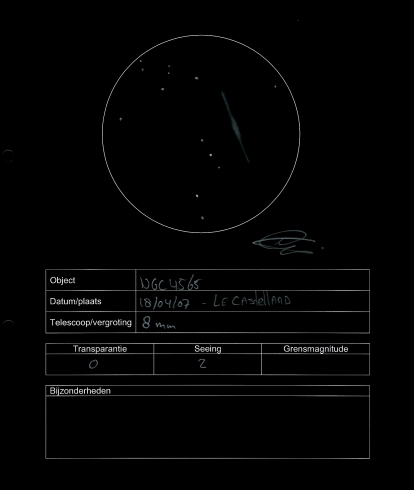 Object NGC 4565
Datum/plaats 18/04/07 - LE CAstellARD
Telescoop/vergroting 8 mm
Transparantie Seeing Grensmagnitude
0 2
Bijzonderheden